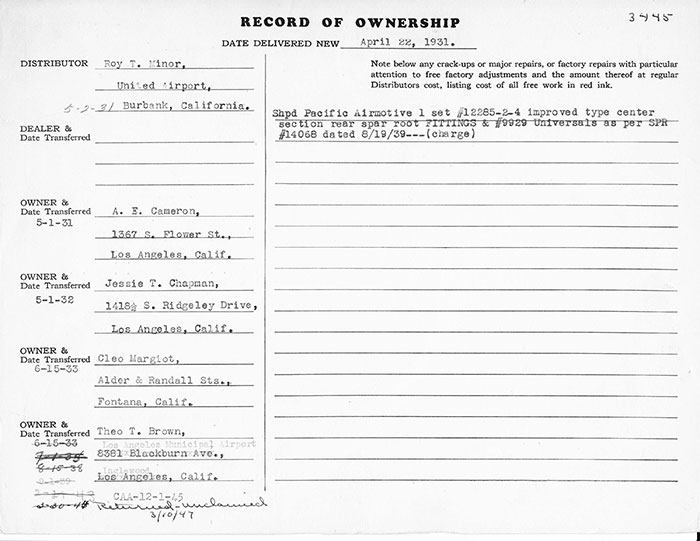 3445
RECORD OF OWNERSHIP
DATE DELIVERED NEW April 22, 1931.
DISTRIBUTOR Roy T. Minor,
United Airport,
5-2-31 Burbank, California.
DEALER &
Date Transferred
OWNER &
Date Transferred A. E. Cameron,
5-1-31
1367 S. Flower St.,
Los Angeles, Calif.
OWNER &
Date Transferred Jessie T. Chapman,
5-1-32
1418½ S. Ridgeley Drive,
Los Angeles, Calif.
OWNER &
Date Transferred Cleo Margiot,
6-15-33
Alder & Randall Sts.,
Fontana, Calif.
OWNER &
Date Transferred Theo T. Brown,
6-15-33 Los Angeles Municipal Airport
7-1-35 8381 Blackburn Ave.,
8-15-38 Inglewood
Los Angeles, Calif.
CAA-12-1-45
Returned-unclaimed
3/10/47
Note below any crack-ups or major repairs, or factory repairs with particular
attention to free factory adjustments and the amount thereof at regular
Distributors cost, listing cost of all free work in red ink.
Shpd Pacific Airmotive 1 set #12285-2-4 improved type center
section rear spar root FITTINGS & #9929 Universals as per SPR
#14068 dated 8/19/39---(charge)